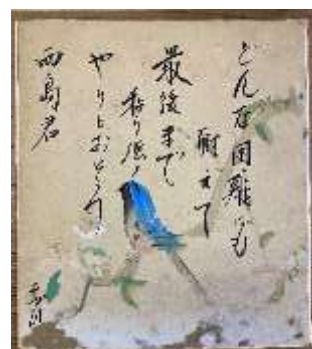 どんな困難にも
耐えて
最後まで
やりとおそう
西島君